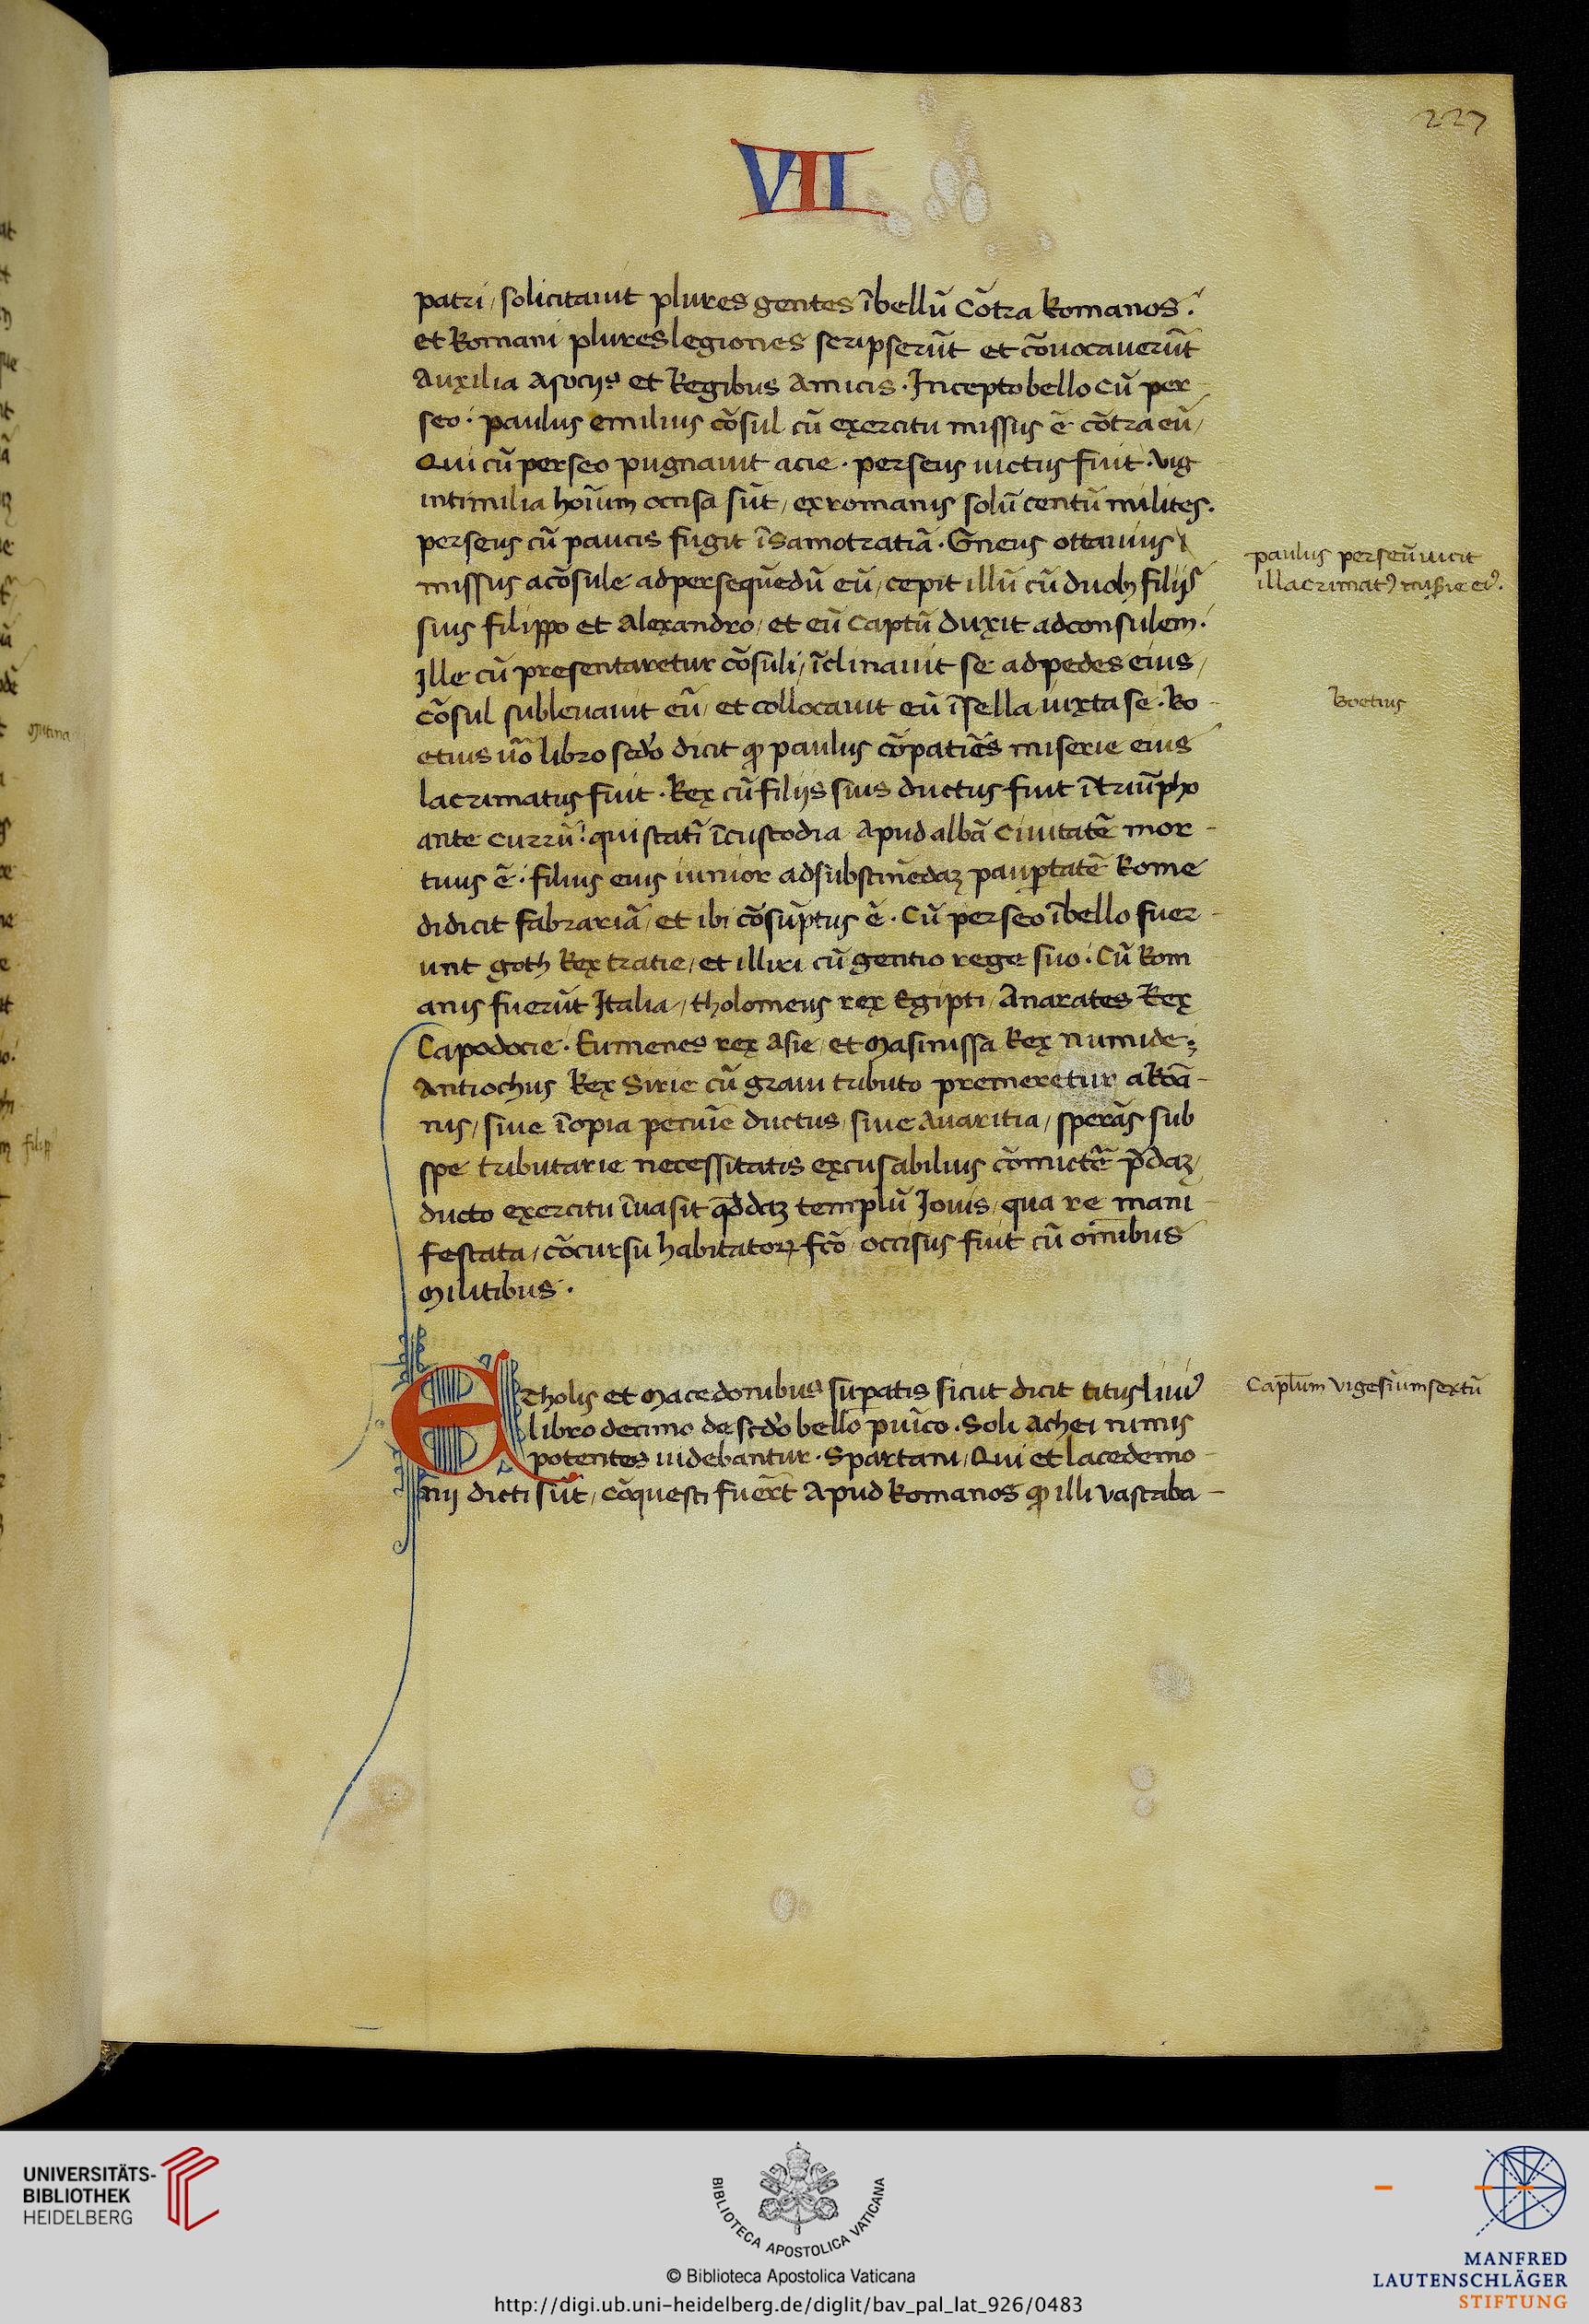 227
VII
patri / solicitauit plures gentes ĩbellũ cõtra Romanos.
et Romani plures legiones scripserũt et cõuocauerũt
Auxilia Asocijs et Regibus Amicis. Inceptobello cũ per
seo. paulus emilius cõsul cũ exercitu missus ẽ cõtra eũ /
Qui cũ perseo pugnauit acie. perseus uictus fuit. vig
intimilia hoĩum occisa sũt / ex romanis solũ centũ milites.
perseus cũ paucis fugit ĩ Samotratiã. Gneus ottauius
missus a cõsule ad persequẽdũ eũ / cepit illũ cũ duob; filijs
suis filippo et Alexandro / et eũ captũ duxit ad consulem.
Ille cũ presentaretur cõsuli / ĩclinauit se ad pedes eius /
cõsul subleuauit eũ / et collocauit eũ ĩ sella iuxta se. Bo
etius uõ libro scđo dicit ꝙ paulus cõpatiẽs miserie eius
lacrimatus fuit. Rex cũ filijs suis ductus fuit ĩ triũpho
ante currũ. qui statĩ ĩ custodia Apud albã Ciuitatẽ mor-
tuus ẽ. filius eius iunior ad substinẽdaꝫ paup̱tatẽ Rome
didicit fabrariã / et ibi cõsũptus ẽ. Cũ perseo ĩbello fuer-
unt goth Rex tratie / et illiri cũ gentio rege suo. Cũ Rom
anis fuerũt Italia / tholomeus rex Egipti / Anarates Rex
Capodocie. Eumenes rex Asie / et Masinissa Rex numide;
Antiochus Rex Sirie cũ graui tributo premeretur a Roã-
nis / siue ĩopia pecuĩe ductus / siue Auaritia / sperãs sub
spe tributarie necessitatis excusabilius cõmictẽ p̃daꝫ /
ducto exercitu ĩuasit qđdaꝫ templũ Jouis / qua re mani-
festata / cõcursu habitatorꝝ fcõ occisus fuit cũ om̃ibus
Militibus.
Etholis et Macedonibus sup̱atis sicut dicit titus liuiꝰ
libro decimo de scđo bello puĩco. Soli Achei nimis
potentes uidebantur. Spartani / Qui et lacedemo-
nij dicti sũt / cõquesti fuer̃t Apud Romanos ꝙ illi vastaba-
paulus perseũ uicit
illacrimatꝰ mis̃ie eiꝰ.
Boetius
Cap̃lum vigesiumsextũ
Mutina
filip̃
UNIVERSITÄTS-
BIBLIOTHEK
HEIDELBERG
BIBLIOTECA APOSTOLICA VATICANA
© Biblioteca Apostolica Vaticana
http://digi.ub.uni-heidelberg.de/diglit/bav_pal_lat_926/0483
MANFRED
LAUTENSCHLÄGER
STIFTUNG